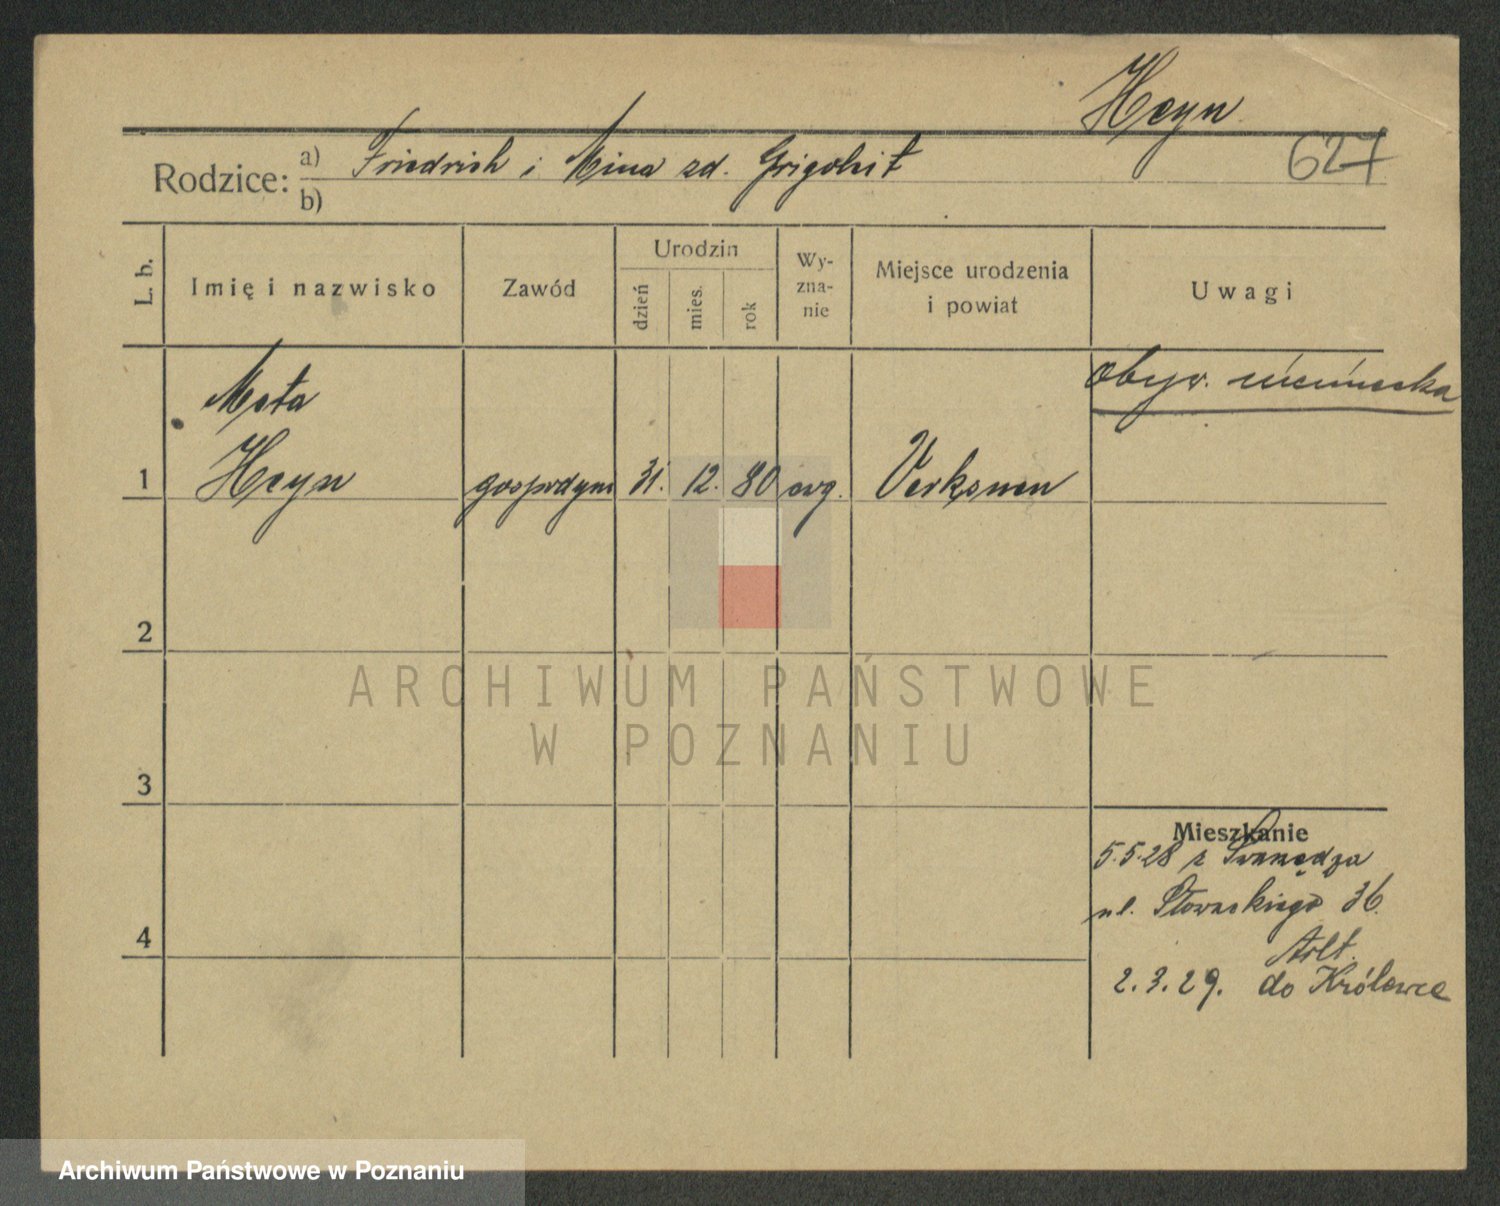 Heyn
627
Rodzice: a) Friedrich i Mina zd. Grigoleit
b)
L. b.
Imię i nazwisko
Zawód
Urodzin
dzień
mies.
rok
Wy-
zna-
nie
Miejsce urodzenia
i powiat
Uwagi
obyw. niemiecka
Meta
1 Heyn gospodyni 31. 12. 80 ewg.
2
3
4
Mieszkanie
5.5.28 z Swarzędza
ul. Słowackiego 36.
Arlt.
2.3.29. do Królewca
ARCHIWUM PAŃSTWOWE
W POZNANIU
Archiwum Państwowe w Poznaniu